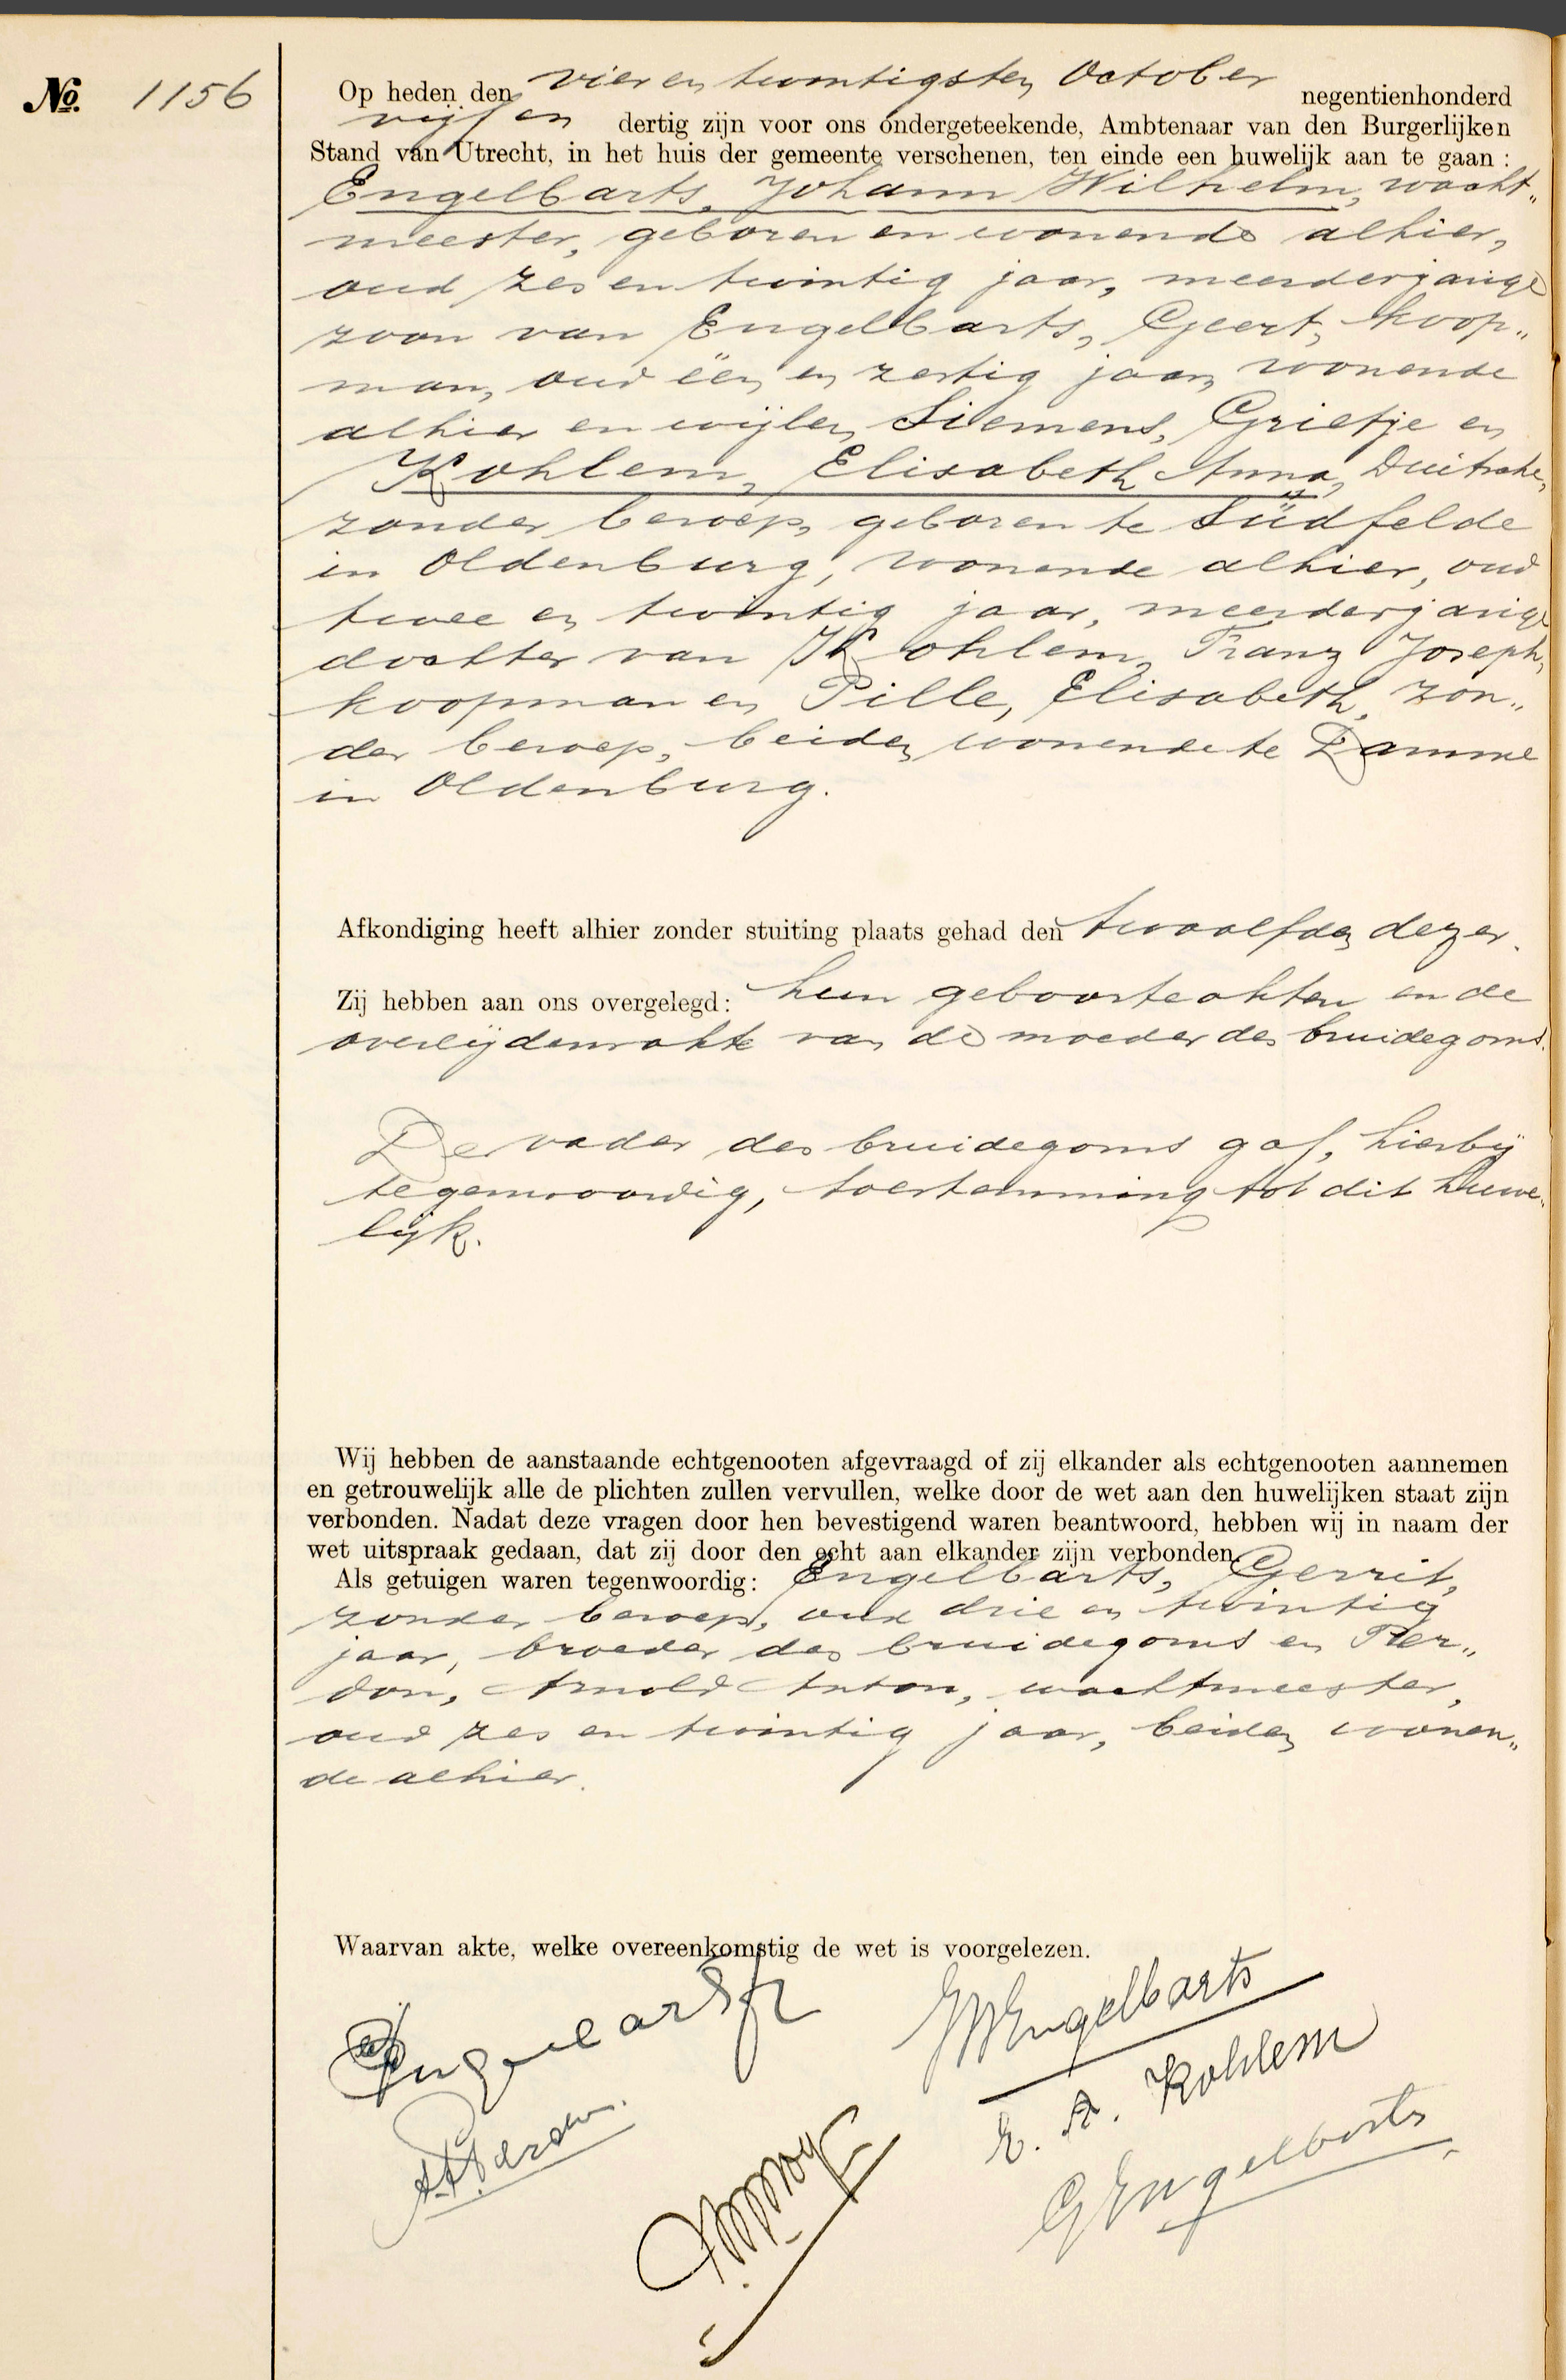 No. 1156
Op heden den vier en twintigsten October negentienhonderd
vijf en dertig zijn voor ons ondergeteekende, Ambtenaar van den Burgerlijken
Stand van Utrecht, in het huis der gemeente verschenen, ten einde een huwelijk aan te gaan :
Engelbarts, Johann Wilhelm, wacht„
meester, geboren en wonende alhier,
oud zes en twintig jaar, meerderjarige
zoon van Engelbarts, Geert, koop„
man, oud één en zestig jaar, wonende
alhier en wijlen Siemens, Grietje en
Kohlem, Elisabeth Anna, Duitsche,
zonder beroep, geboren te Südfelde
in Oldenburg, wonende alhier, oud
twee en twintig jaar, meerderjarige
dochter van Kohlem, Franz Joseph,
koopman en Pille, Elisabeth, zon„
der beroep, beiden wonende te Damme
in Oldenburg.
Afkondiging heeft alhier zonder stuiting plaats gehad den twaalfden dezer.
Zij hebben aan ons overgelegd: hun geboorteakten en de
overlijdensakte van de moeder des bruidegoms.
De vader des bruidegoms gaf, hierbij
tegenwoordig, toestemming tot dit huwe„
lijk.
Wij hebben de aanstaande echtgenooten afgevraagd of zij elkander als echtgenooten aannemen
en getrouwelijk alle de plichten zullen vervullen, welke door de wet aan den huwelijken staat zijn
verbonden. Nadat deze vragen door hen bevestigend waren beantwoord, hebben wij in naam der
wet uitspraak gedaan, dat zij door den echt aan elkander zijn verbonden.
Als getuigen waren tegenwoordig: Engelbarts, Gerrit,
zonder beroep, oud drie en twintig
jaar, broeder des bruidegoms en Per„
don, Arnold Anton, wachtmeester,
oud zes en twintig jaar, beiden wonen„
de alhier.
Waarvan akte, welke overeenkomstig de wet is voorgelezen.
JWEngelbarts
E. A. Kohlem
GEngelbarts
AAPerdon.